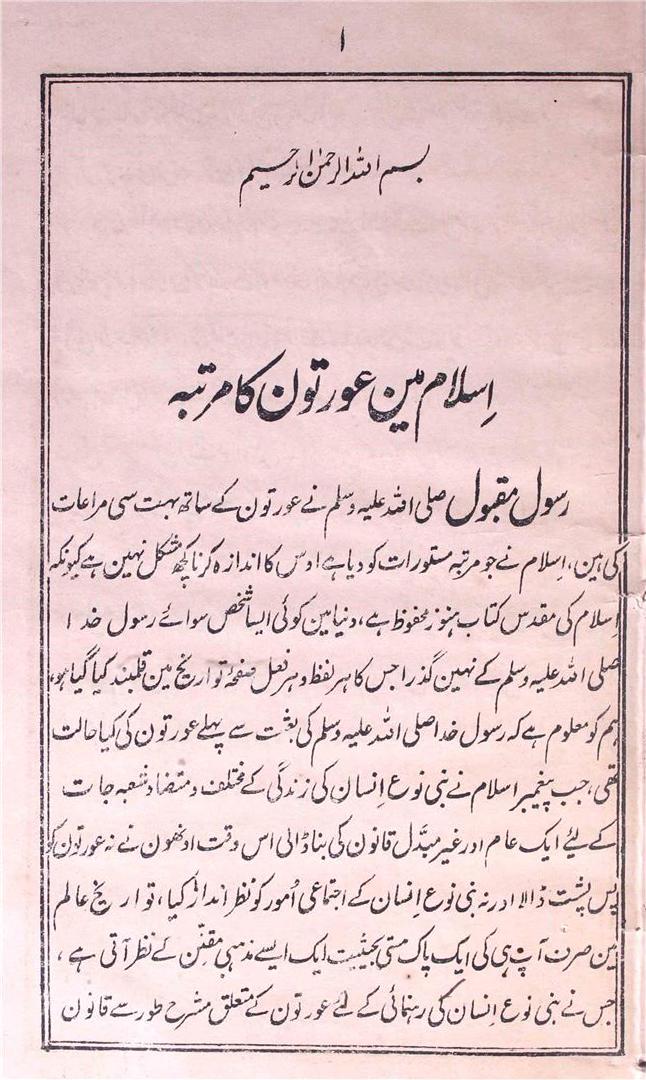 ۱
بسم اللہ الرحمن الرحیم
اِسلام مین عورتون کا مرتبہ
رسول مقبول صلی اللہ علیہ وسلم نے عورتون کے ساتھ بہت سی مراعات
کی ہین، اِسلام نے جو مرتبہ مستورات کو دیا ہے اوس کا اندازہ کرنا کچھ مشکل نہین ہے کیونکہ
اِسلام کی مقدس کتاب ہنوز محفوظ ہے، دنیا مین کوئی ایسا شخص سوائے رسول خدا
صلی اللہ علیہ وسلم کے نہین گذرا جس کا ہر لفظ و ہر فعل صفحۂ تواریخ مین قلمبند کیا گیا ہو،
ہم کو معلوم ہے کہ رسول خدا صلی اللہ علیہ وسلم کی بعثت سے پہلے عورتون کی کیا حالت
تھی، جب پیغمبر اسلام نے بنی نوع اِنسان کی زندگی کے مختلف و متضاد شعبہ جات
کے لیٔے ایک عام اور غیر مبدَّل قانون کی بنا ڈالی اس وقت اونھون نے نہ عورتون کو
پس پشت ڈالا اور نہ بنی نوع اِنسان کے اجتماعی اُمور کو نظر انداز کیا، تواریخ عالم
مین صرف آپ ہی کی ایک پاک ہستی بحیثیت ایک ایسے مذہبی مقنّن کے نظر آتی ہے،
جس نے بنی نوع اِنسان کی رہنمائی کے لئے عورتون کے متعلق مشرح طور سے قانون